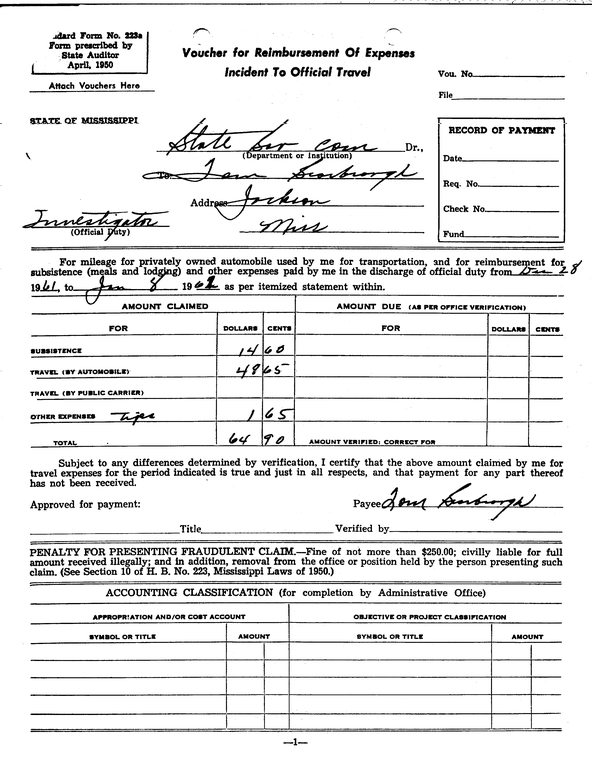 dard Form No. 223a
Form prescribed by
State Auditor
April, 1950
Attach Vouchers Here
Voucher for Reimbursement Of Expenses
Incident To Official Travel
Vou. No.
File
STATE OF MISSISSIPPI
State Sov Com Dr.,
(Department or Institution)
To Tom Scarbrough
Address Jackson
Miss
Investigator
(Official Duty)
RECORD OF PAYMENT
Date
Req. No.
Check No.
Fund
For mileage for privately owned automobile used by me for transportation, and for reimbursement for
subsistence (meals and lodging) and other expenses paid by me in the discharge of official duty from Dec 28
1961, to Jan 8 1962 as per itemized statement within.
AMOUNT CLAIMED AMOUNT DUE (AS PER OFFICE VERIFICATION)
FOR DOLLARS CENTS FOR DOLLARS CENTS
SUBSISTENCE 14 60
TRAVEL (BY AUTOMOBILE) 48 65
TRAVEL (BY PUBLIC CARRIER)
OTHER EXPENSES Tips 1 65
TOTAL 64 90 AMOUNT VERIFIED: CORRECT FOR
Subject to any differences determined by verification, I certify that the above amount claimed by me for
travel expenses for the period indicated is true and just in all respects, and that payment for any part thereof
has not been received.
Approved for payment: Payee Tom Scarbrough
Title Verified by
PENALTY FOR PRESENTING FRAUDULENT CLAIM.—Fine of not more than $250.00; civilly liable for full
amount received illegally; and in addition, removal from the office or position held by the person presenting such
claim. (See Section 10 of H. B. No. 223, Mississippi Laws of 1950.)
ACCOUNTING CLASSIFICATION (for completion by Administrative Office)
APPROPRIATION AND/OR COST ACCOUNT OBJECTIVE OR PROJECT CLASSIFICATION
SYMBOL OR TITLE AMOUNT SYMBOL OR TITLE AMOUNT
—1—